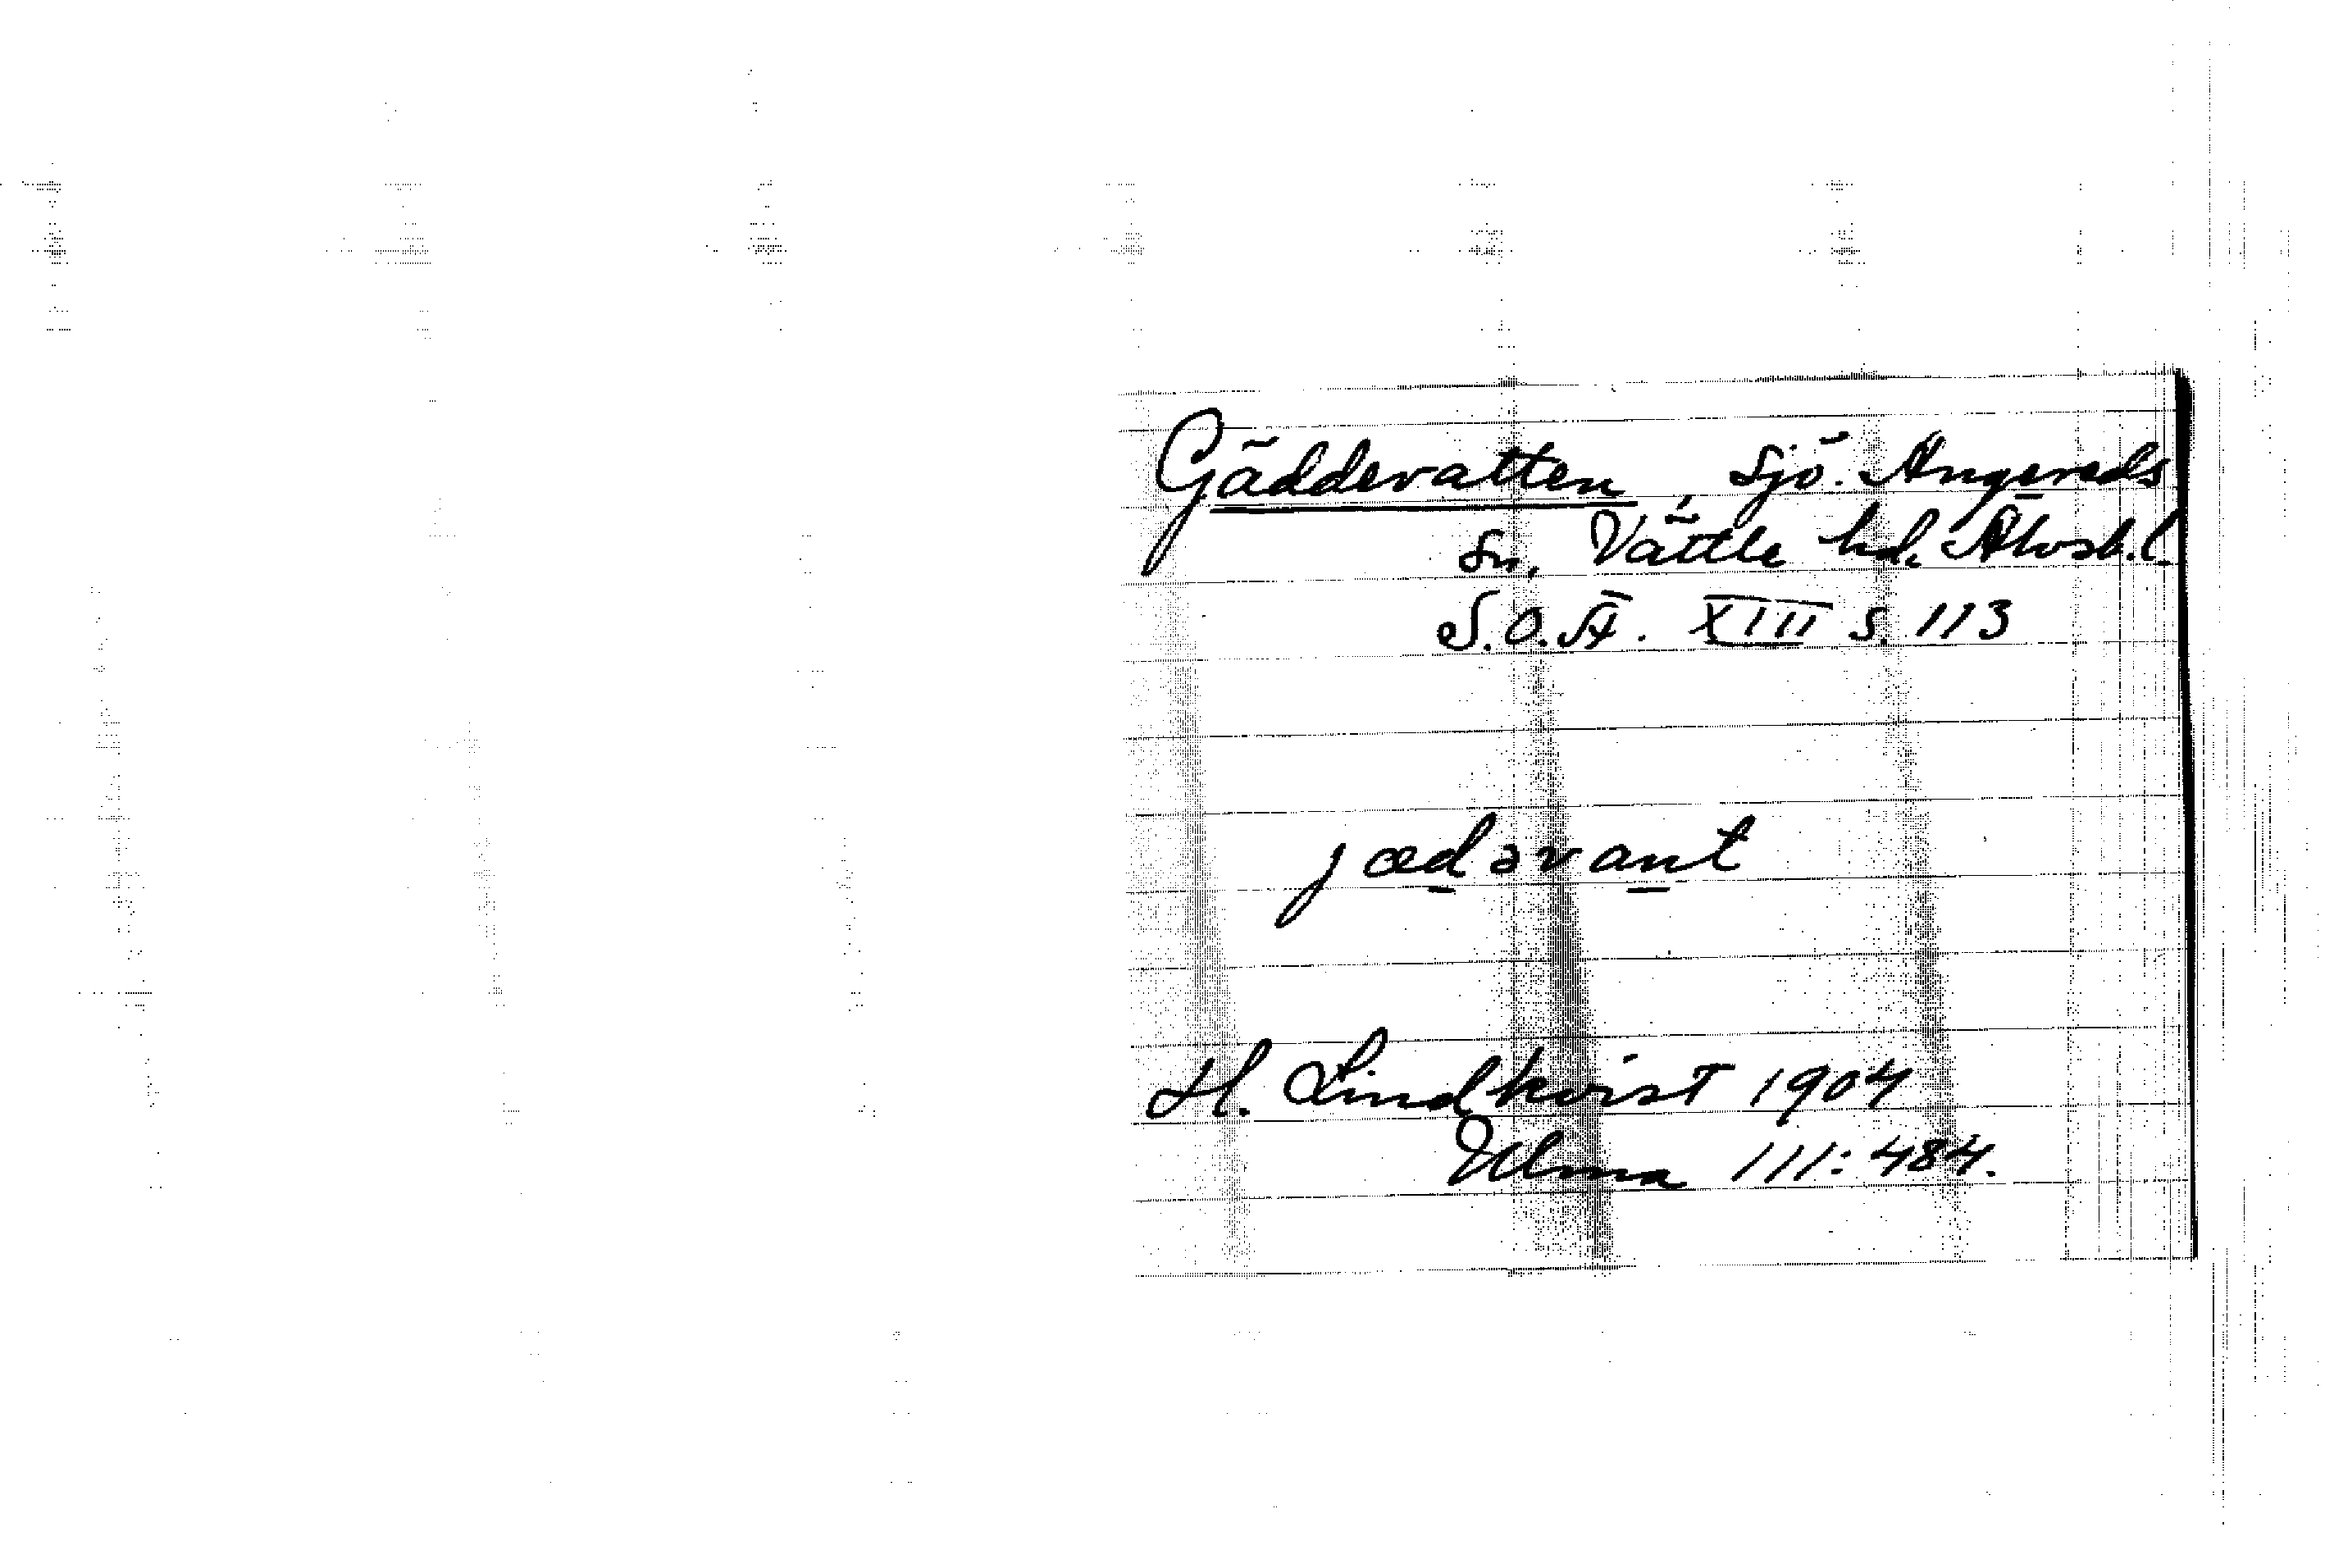 Gäddevatten, sjö. Angereds
sn. Vättle hd. Älvsb.l.
S.O.Ä. XIII s. 113
jædəvant
H. Lindkvist 1904
Ulma 111:484.